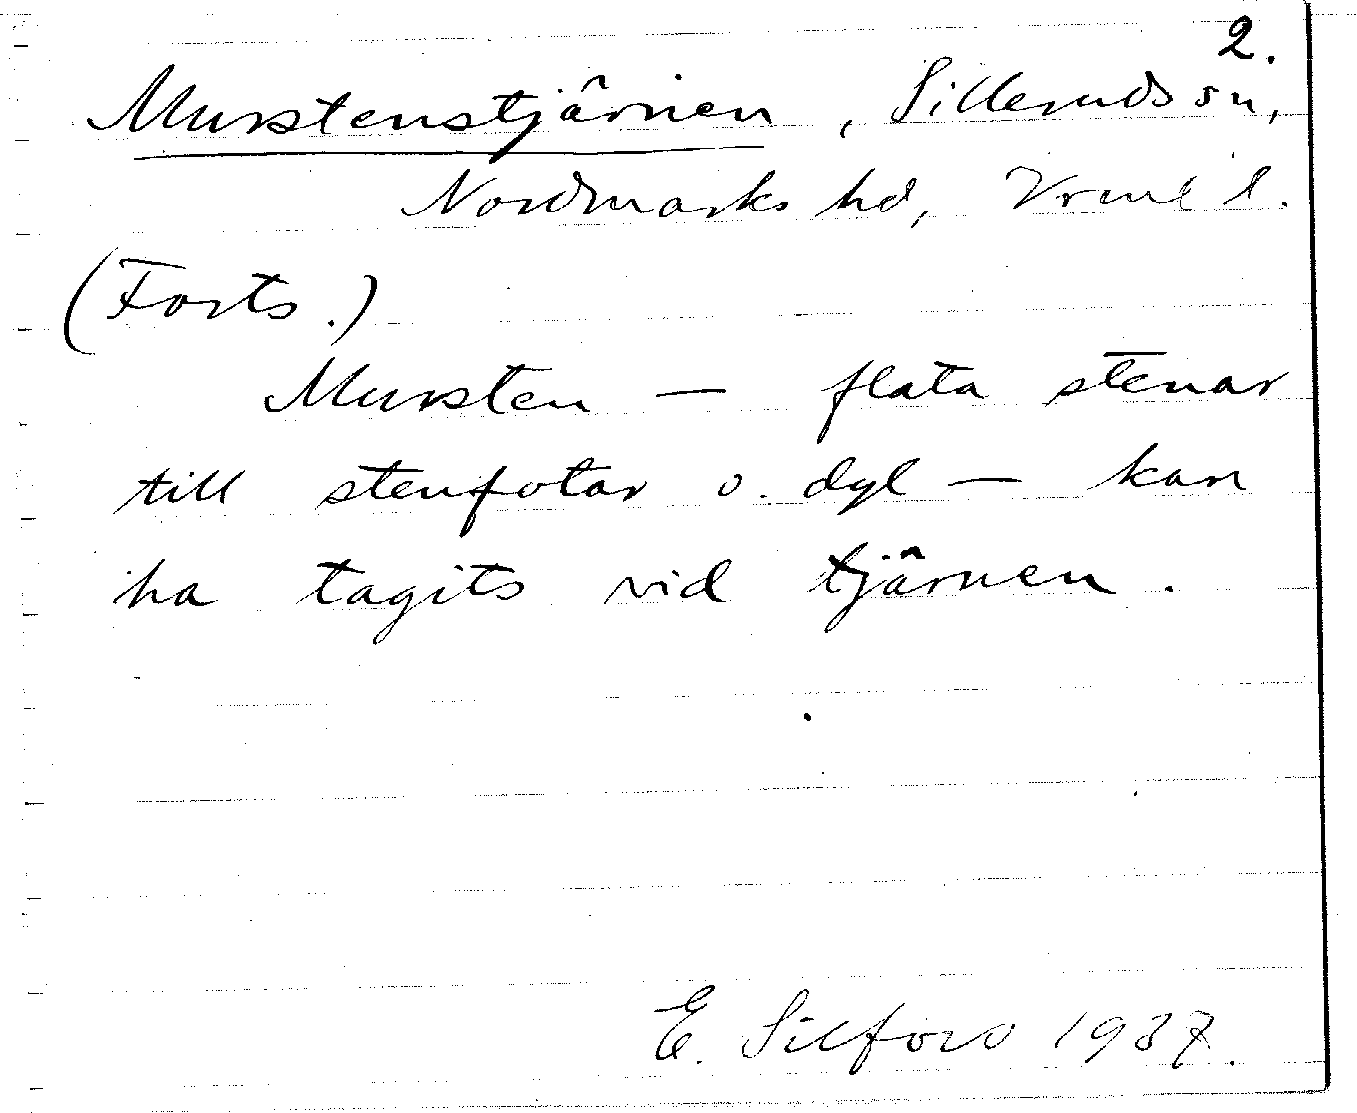 2.
Murstenstjärnen, Silleruds sn,
Nordmarks hd, Vrml l.
(Forts.)
Mursten — flata stenar
till stenfotar o. dyl — kan
ha tagits vid tjärnen.
E. Silfors 1937.